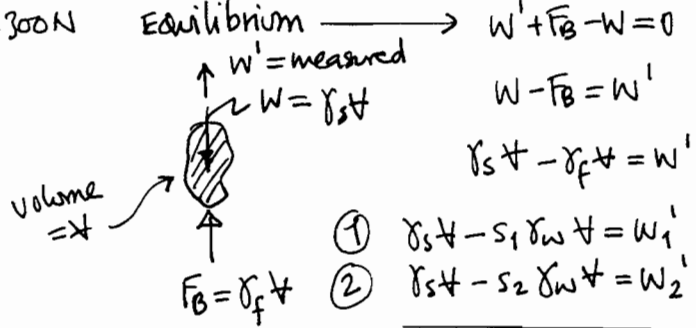 300N Equilibrium ⟶ W'+F_B-W=0
W'=measured
W=γ_s∀
W-F_B=W'
γ_s∀-γ_f∀=W'
volume
=∀
① γ_s∀-S₁γ_w∀=W₁'
F_B=γ_f∀
② γ_s∀-S₂γ_w∀=W₂'